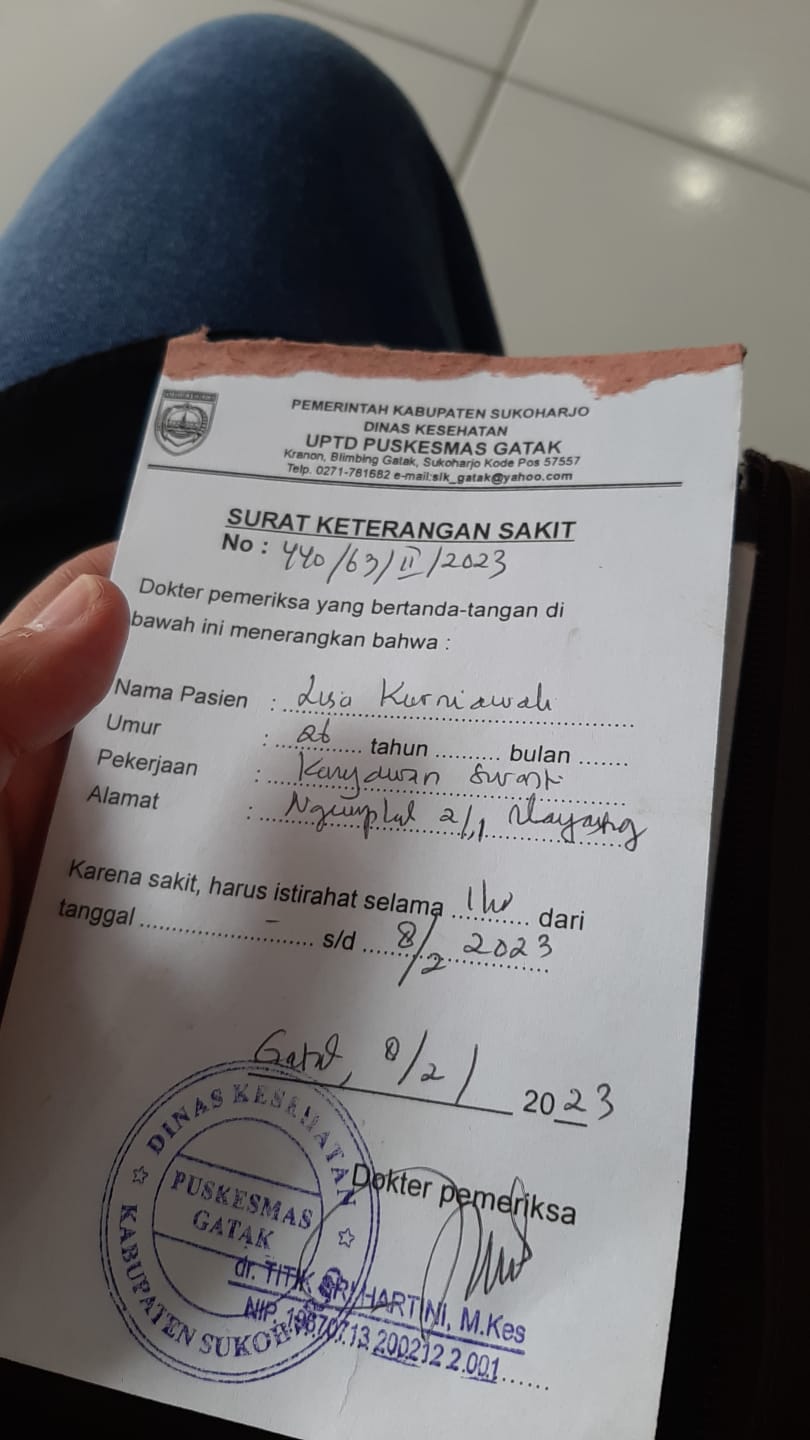 PEMERINTAH KABUPATEN SUKOHARJO
DINAS KESEHATAN
UPTD PUSKESMAS GATAK
Kranon, Blimbing Gatak, Sukoharjo Kode Pos 57557
Telp. 0271-781682 e-mail:slk_gatak@yahoo.com
SURAT KETERANGAN SAKIT
No : 440/63/II/2023
Dokter pemeriksa yang bertanda-tangan di
bawah ini menerangkan bahwa :
Nama Pasien : Lisa Kurniawati
Umur : 26 tahun .......... bulan .......
Pekerjaan : Karyawan Swasta
Alamat : 2/1
Karena sakit, harus istirahat selama .......... dari
tanggal ........ - ........ s/d 8/2 2023
Gatak, 8/2/ 2023
Dokter pemeriksa
DINAS KESEHATAN
PUSKESMAS
GATAK
KABUPATEN SUKOHARJO
dr. TITIK SRI HARTINI, M.Kes
NIP. 19670713 200212 2.001